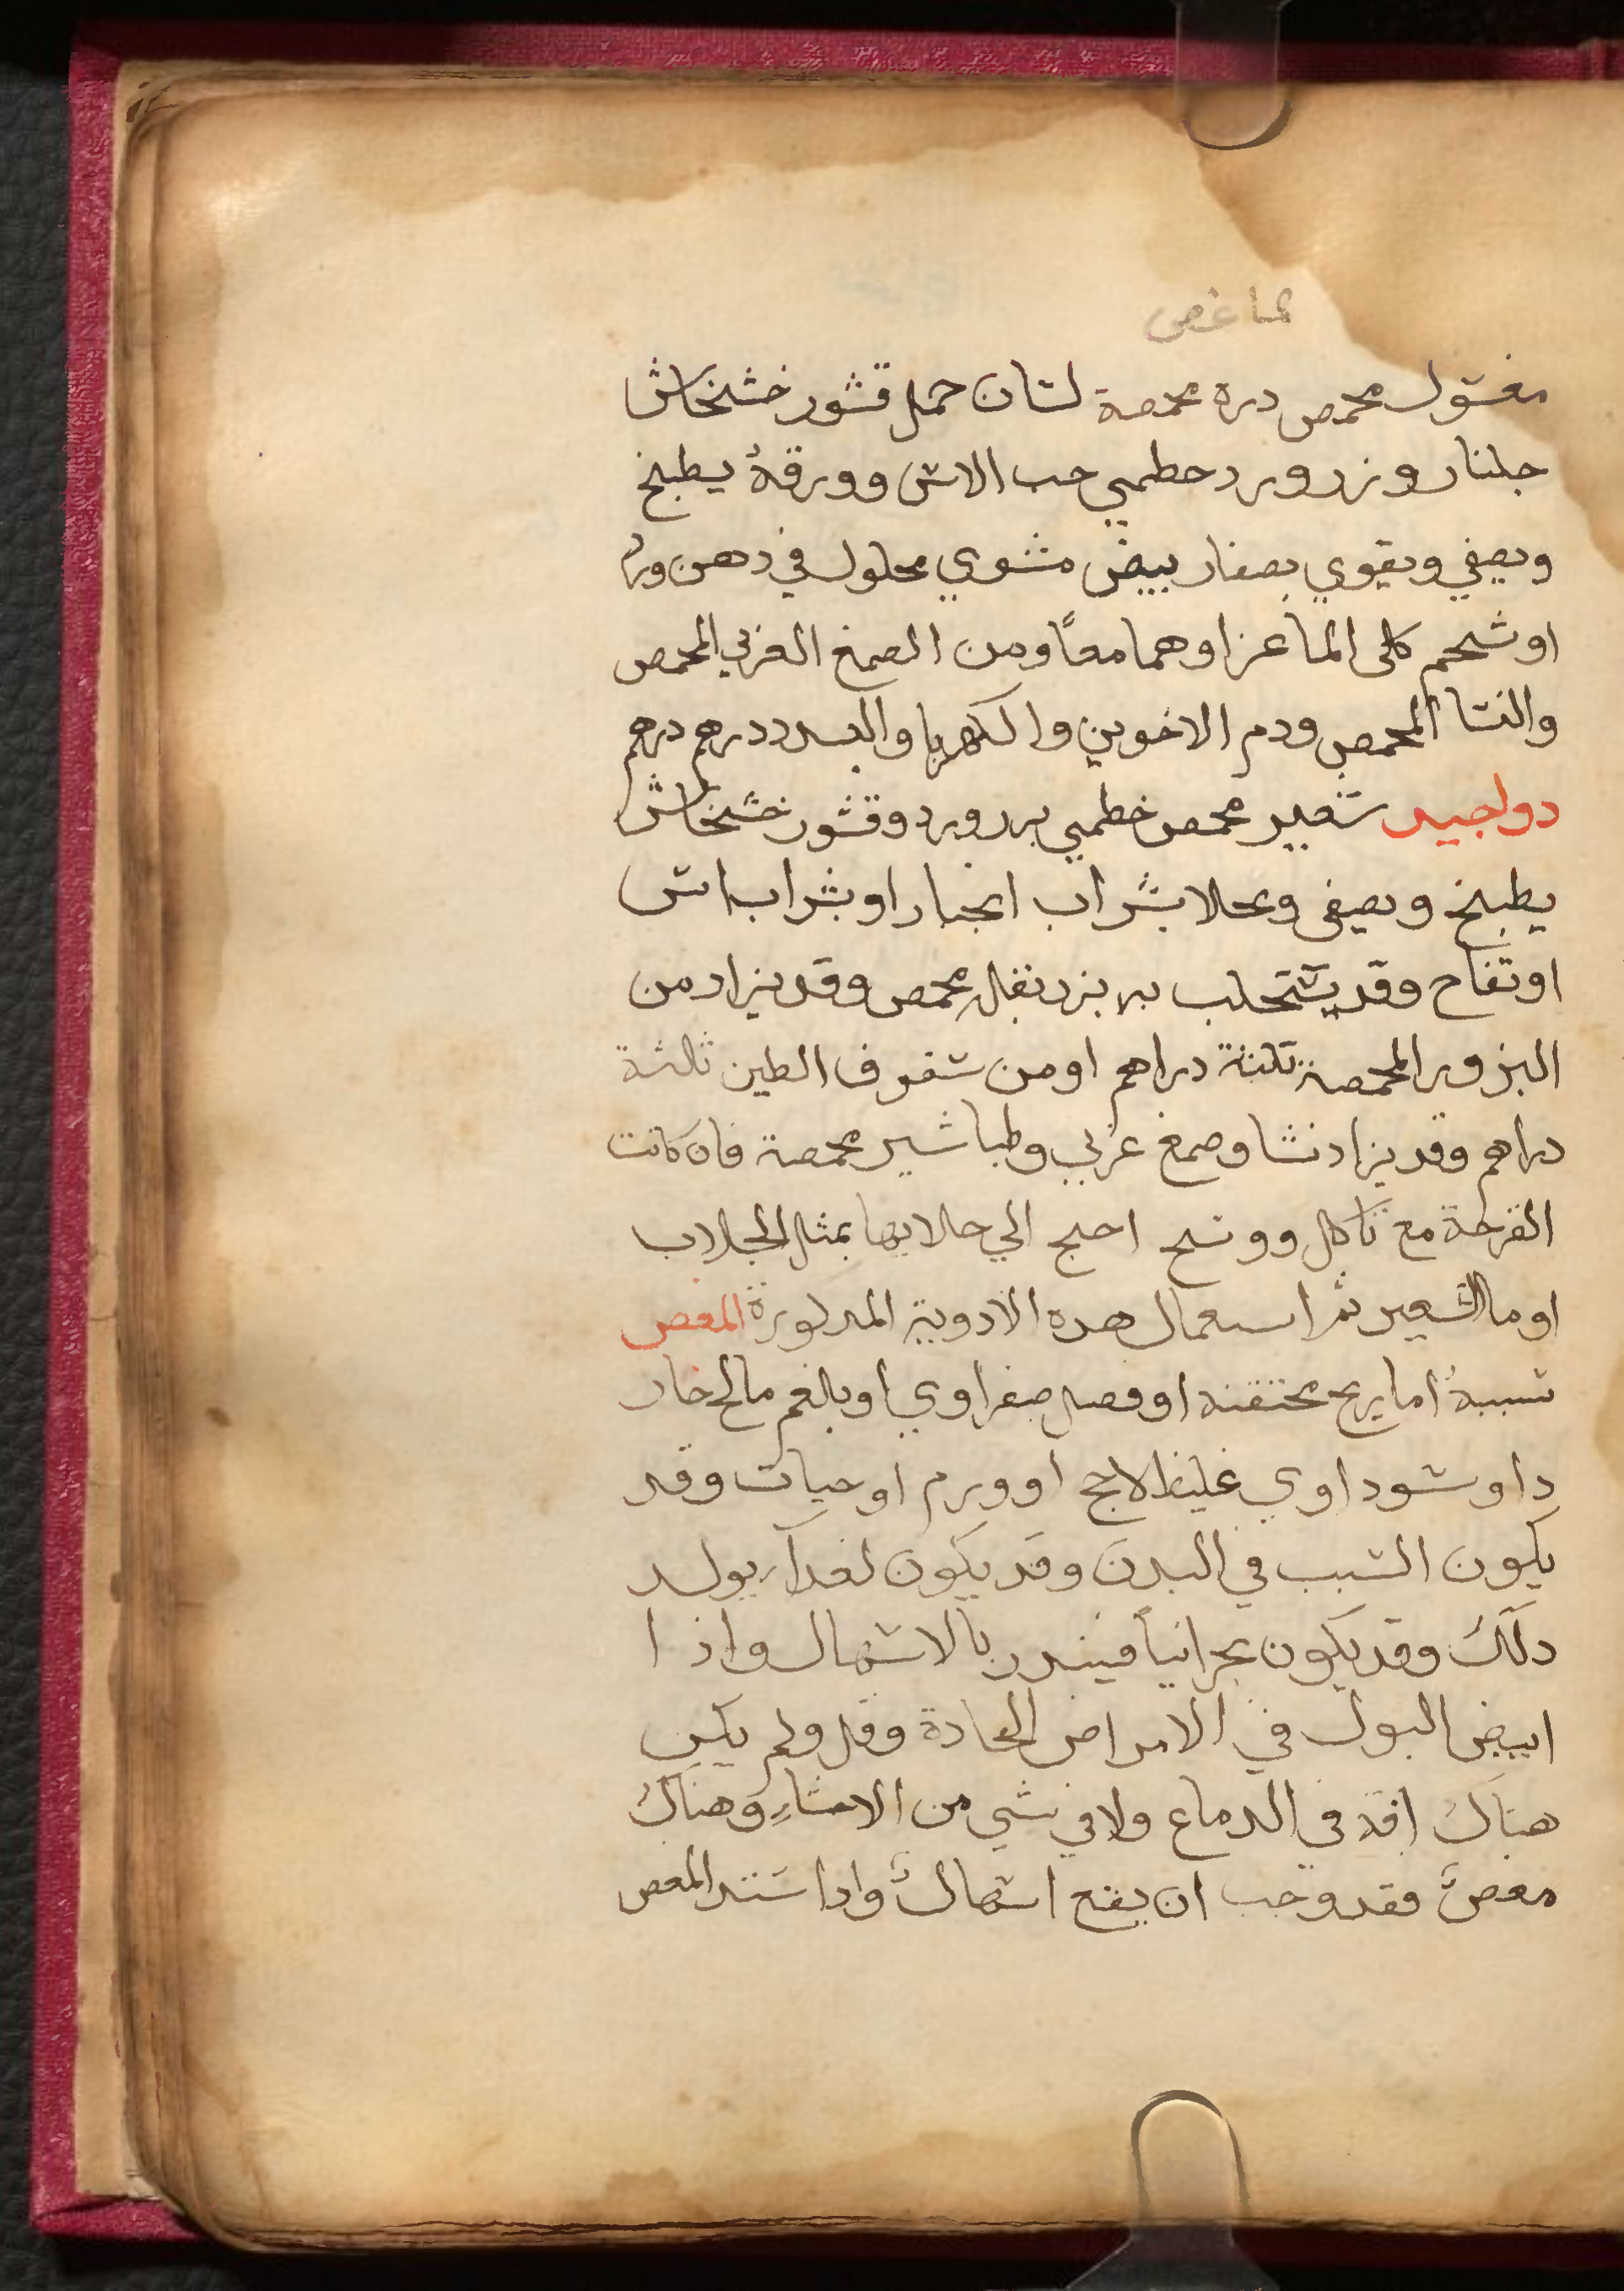 مغسول محمص درة محمصة لسان حمل قشور خشخاش
جلنار وزر ورد خطمي حب الاس وورقهُ يطبخ
ويصفي ويقوي بصفار بيض مشوي محلول في دهن ورد
او شحم كلى الماعز او هما معاً ومن الصمغ العربي المحمص
والنشا المحمص ودم الاخوين والكهربا والبسد درهم درهم
دوا جيد شعير محمص خطمي بزر ورد وقشور خشخاش
يطبخ ويصفى ويحلا بشراب انجبار او بشراب اس
او تفاح وقد يستحلب به بزر بقلة محمص وقد يزاد من
البزور المحمصة ثلثة دراهم او من سفوف الطين ثلثة
دراهم وقد يزاد نشا وصمغ عربي وطباشير محمصة فان كانت
القرحة مع تاكل ووسخ احتج الي جلايها بمثل الجلاب
او ما الشعير ثم استعمال هده الادوية المدكورة المغص
سببهُ اما ريح محتقنة او فضل صفراوي او بلغم مالح حاد
او سوداوي غليظ لاحج او ورم او حيات وقد
يكون السبب في البدن وقد يكون لغدآ يولد
دلك وقد يكون بحرانياً فيندر بالاسهال واذا
ابيض البول في الامراض الحادة وقل ولم يكن
هناك افة في الدماغ ولا في شي من الاحشاءِ وهناك
مغصٌ فقد وجب ان يقع اسهالٌ واذا اشتد المغص